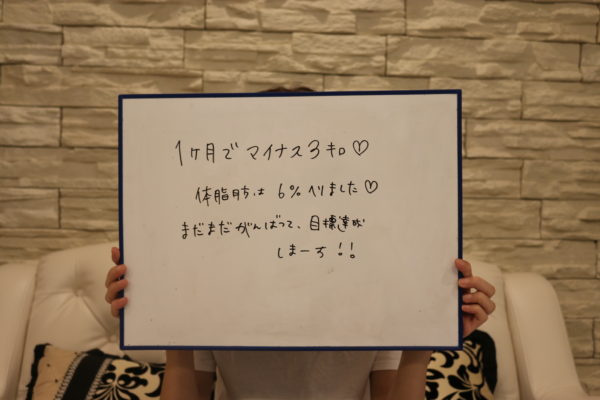 1ヶ月でマイナス3キロ♡
体脂肪は6%へりました♡
まだまだがんばって、目標達成
しまーす!!